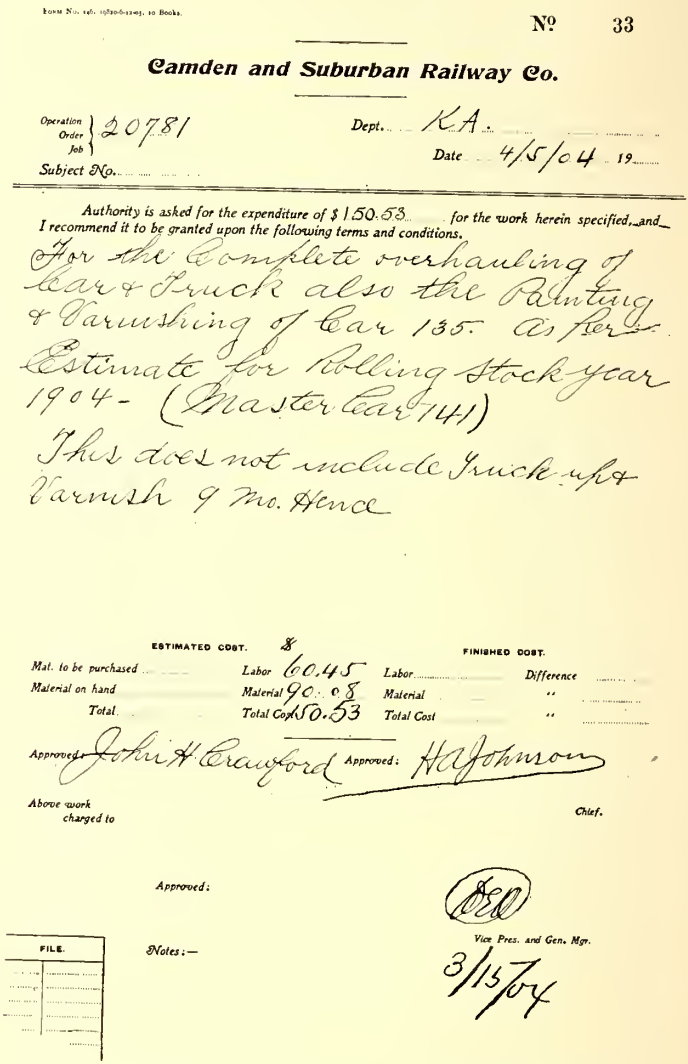 FORM No. 146. 19820-6-12-03. 10 Books.
No 33
Camden and Suburban Railway Co.
Operation
Order
Job
20781
Dept. K A.
Date 4/5/04 19
Subject No.
Authority is asked for the expenditure of $150.53 for the work herein specified, and
I recommend it to be granted upon the following terms and conditions.
For the Complete overhauling of
Car & Truck also the Painting
& Varnishing of Car 135. As per
Estimate for Rolling Stock year
1904- (Master Car 141)
This does not include Truck up &
Varnish 9 Mo. Hence
ESTIMATED COST. $ FINISHED COST.
Mat. to be purchased Labor 60.45 Labor Difference
Material on hand Material 90.08 Material "
Total. Total Cost 150.53 Total Cost "
Approved: John H. Crawford Approved: H A Johnson
Above work
charged to
Chief.
Approved:
Vice Pres. and Gen. Mgr.
FILE.
Notes:—
3/15/04